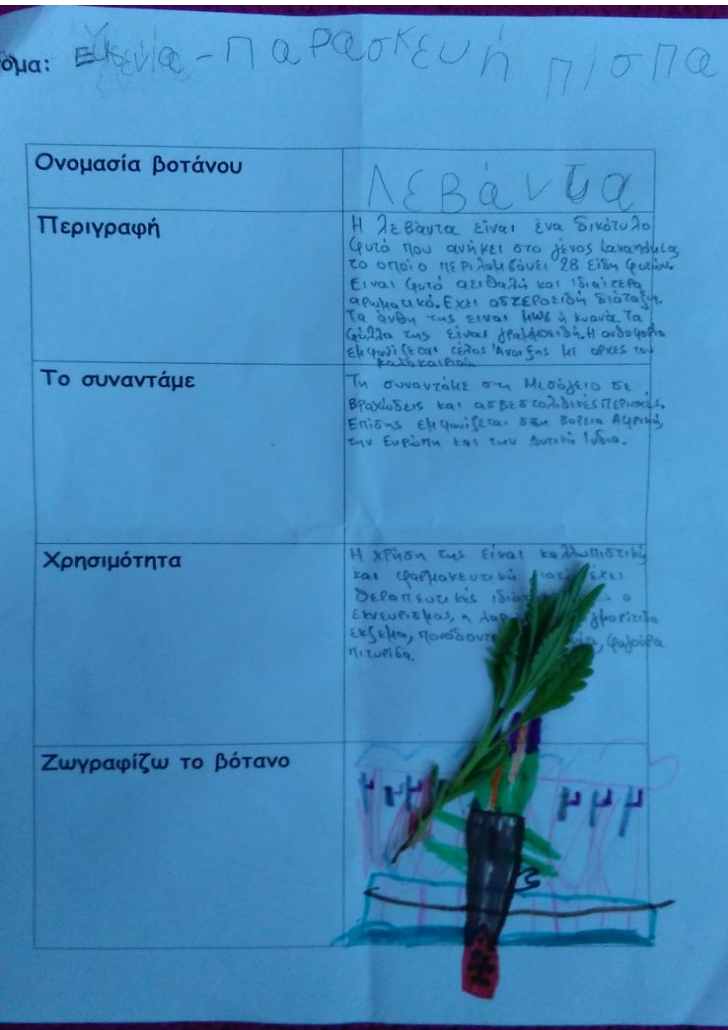 όμα: Ευγενία - Παρασκευή Πίσπα
Ονομασία βοτάνου
Λεβάντα
Περιγραφή
Η λεβάντα είναι ένα δικότυλο
φυτό που ανήκει στο γένος Lavandula
το οποίο περιλαμβάνει 28 είδη φυτών.
Είναι φυτό αειθαλή και ιδιαίτερα
αρωματικό. Έχει αστεροειδή διάταξη.
Τα άνθη της είναι μωβ ή κυανά. Τα
φύλλα της είναι γραμμοειδή. Η ανθοφορία
εμφανίζεται τέλος Άνοιξης με αρχές του
καλοκαιριού
Το συναντάμε
Τη συναντάμε στη Μεσόγειο σε
βραχώδεις και ασβεστολιθικές περιοχές.
Επίσης εμφανίζεται στη Βόρεια Αφρική
την Ευρώπη και την Δυτική Ινδία.
Χρησιμότητα
Η χρήση της είναι καλλωπιστική
και φαρμακευτική έχει
θεραπευτικές ο
εκνευρισμός, η
έκζεμα, φαγούρα
πιτυρίδα.
Ζωγραφίζω το βότανο